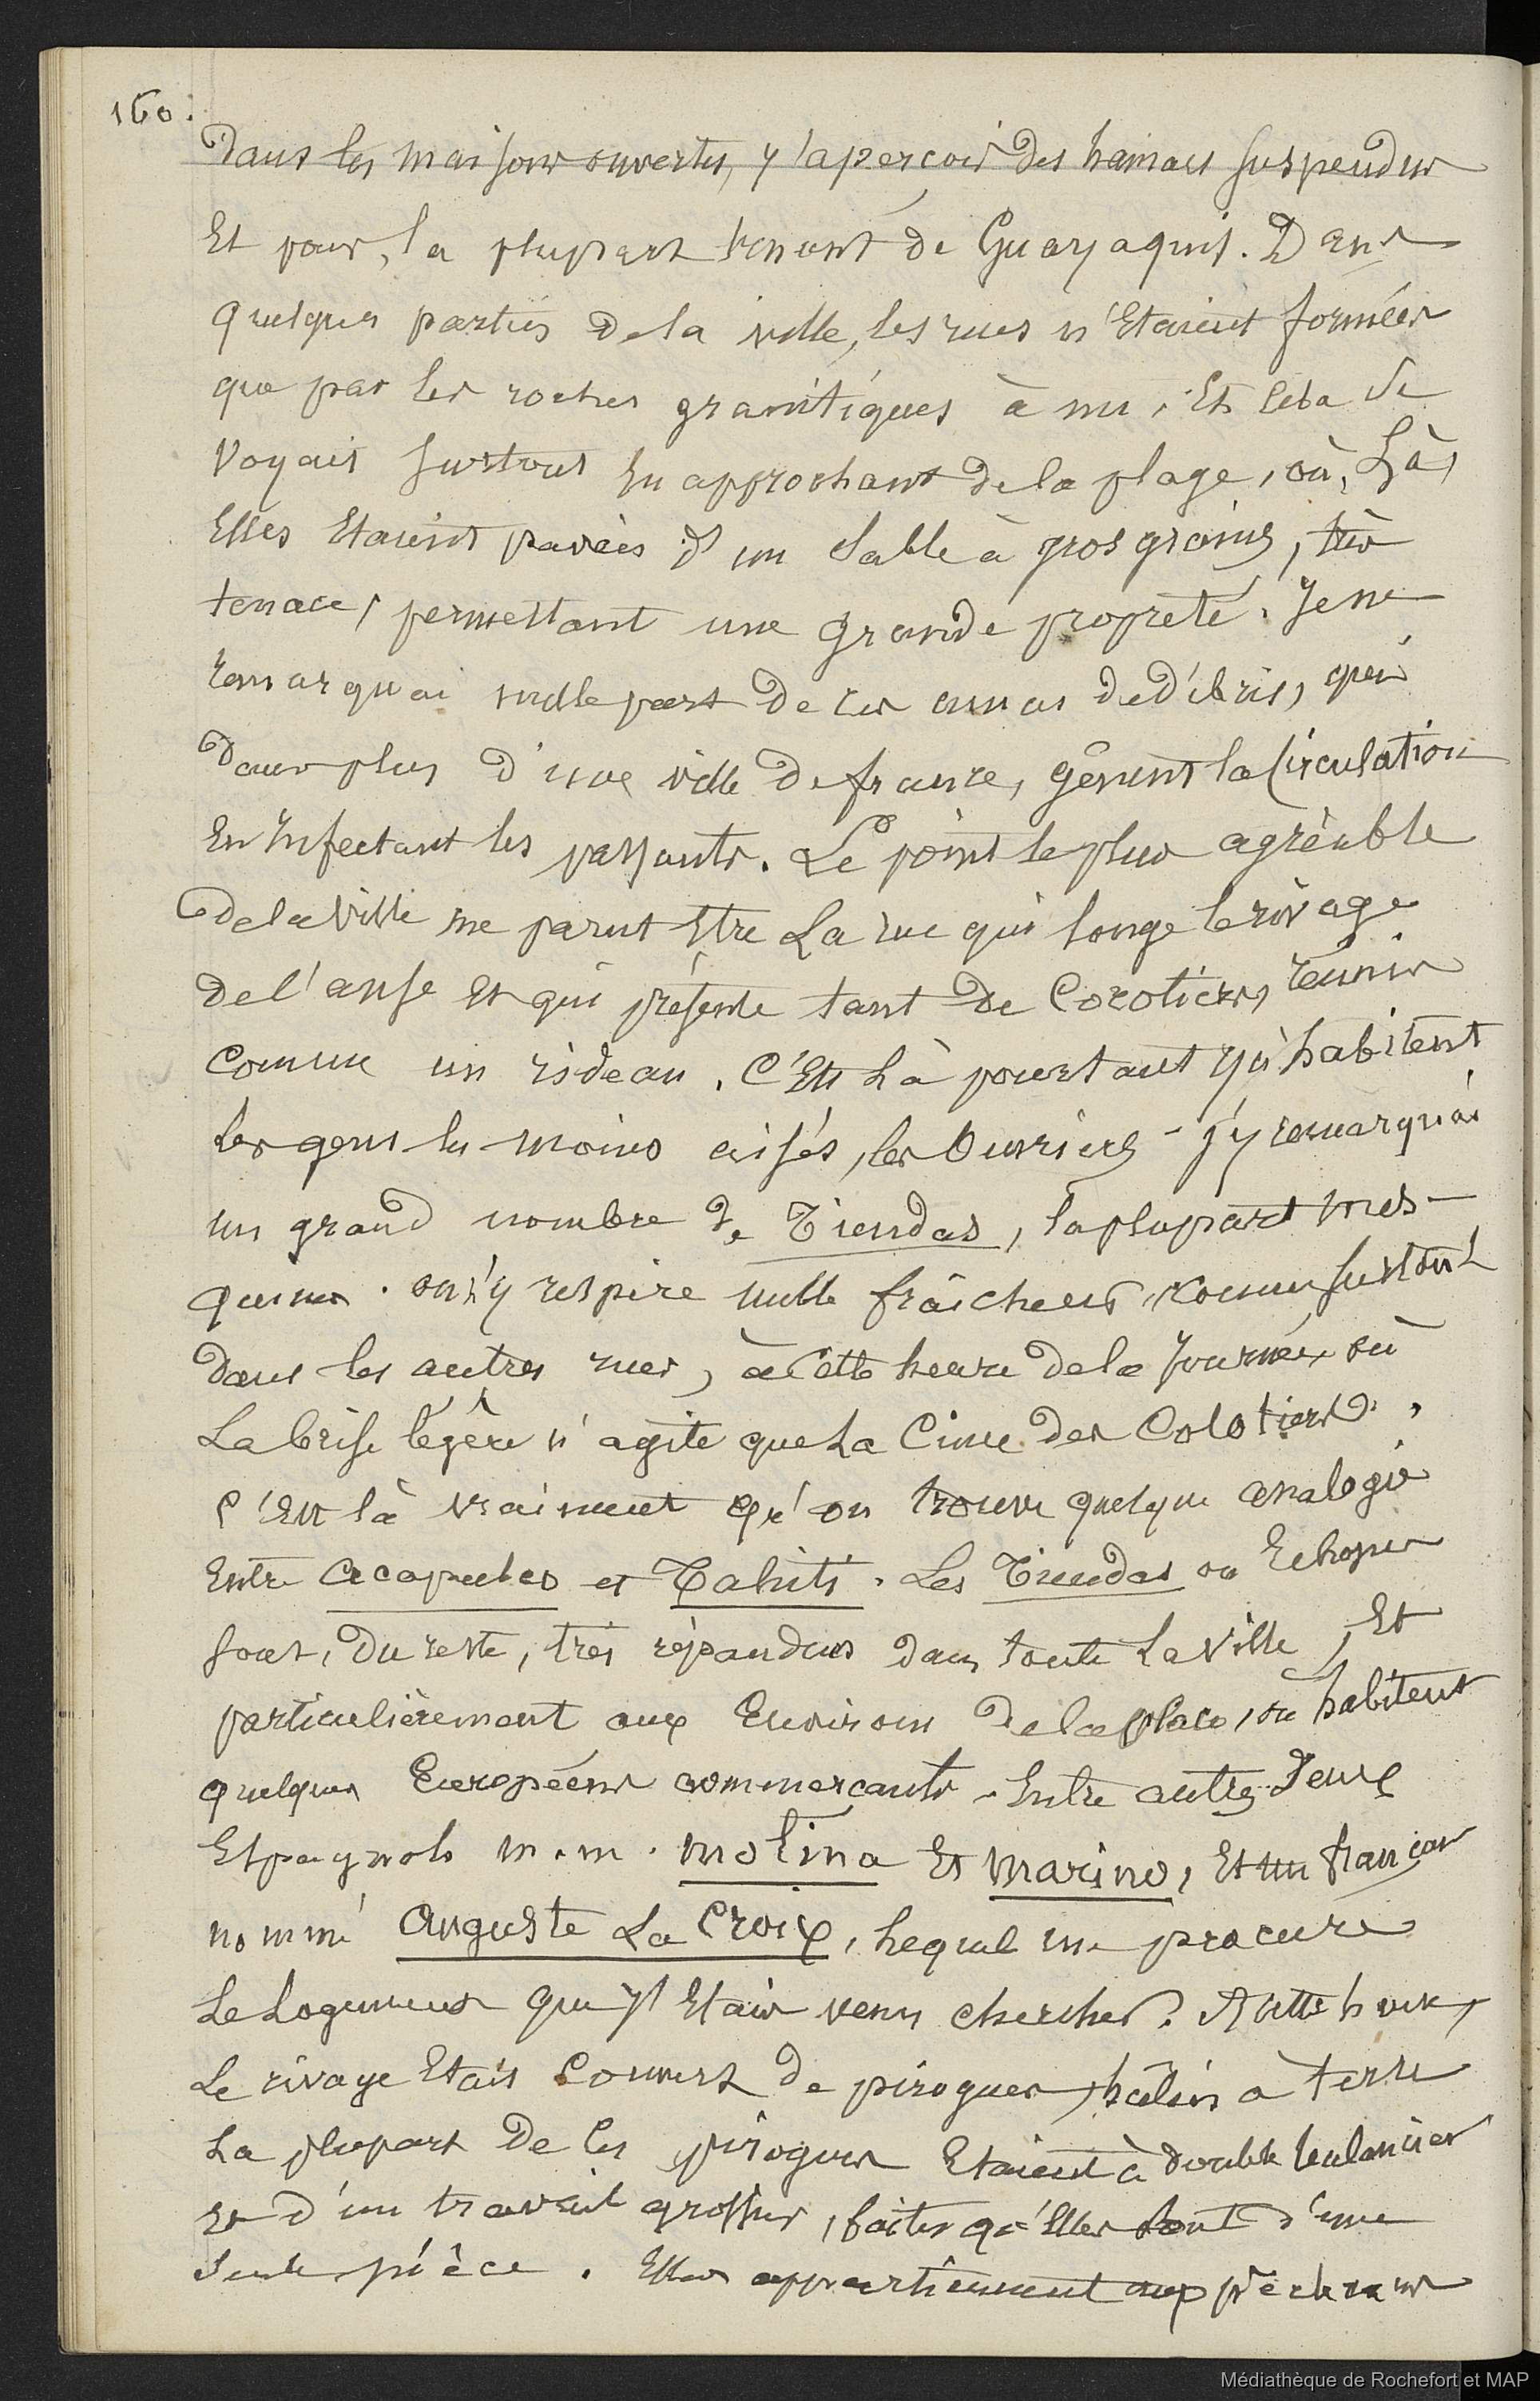 160.
Dans les maisons ouvertes, j'aperçois des hamacs suspendus
Et pour, la plupart venant de Guayaquil. Dans
quelques parties de la ville, les rues n'étaient formées
que par les roches granitiques à nu, Et cela se
voyait surtout En approchant de la plage, où, Là,
Elles Etaient pavées d'un sable à gros grains, très
tenace, permettant une grande propreté. Je ne
remarquai nulle part de ces amas de débris, qui
dans plus d'une ville de france, gênent la Circulation
En Infectant les passants. Le point le plus agréable
de la Ville me parut Etre La rue qui longe le rivage
de l'anse et qui présente tant de Cocotiers, réunis
comme un rideau. C'Est Là pourtant qu'habitent
les gens les moins aisés, les Ouvriers - j'y remarquai
un grand nombre de Tiendas, la plupart mes-
quines. on n'y respire nulle fraîcheur, comme surtout
dans les autres rues, à Cette heure de la Journée où
La brise légère n'agite que La Cime des Cocotiers.
C'Est là vraiment qu'on trouve quelque analogie
Entre Acapulco et Tahiti. Les Tiendas ou Echopes
sont, du reste, très répandues dans toute La Ville, Et
particulièrement aux Environs de la place, où habitent
quelques Européens commerçants. Entre autres deux
Espagnols m.m. molina Et marino, Et un français
nommé Auguste La Croix, Lequel me procure
Le Logement que j'Etais venu chercher. A cette heure,
Le rivage Etait Couvert de pirogues, hâlées à terre
La plupart de Ces pirogues Etaient à double balancier
et d'un travail grossier, faites qu'Elles sont d'une
seule pièce. Elles appartiennent aux pêcheurs
Médiathèque de Rochefort et MAP